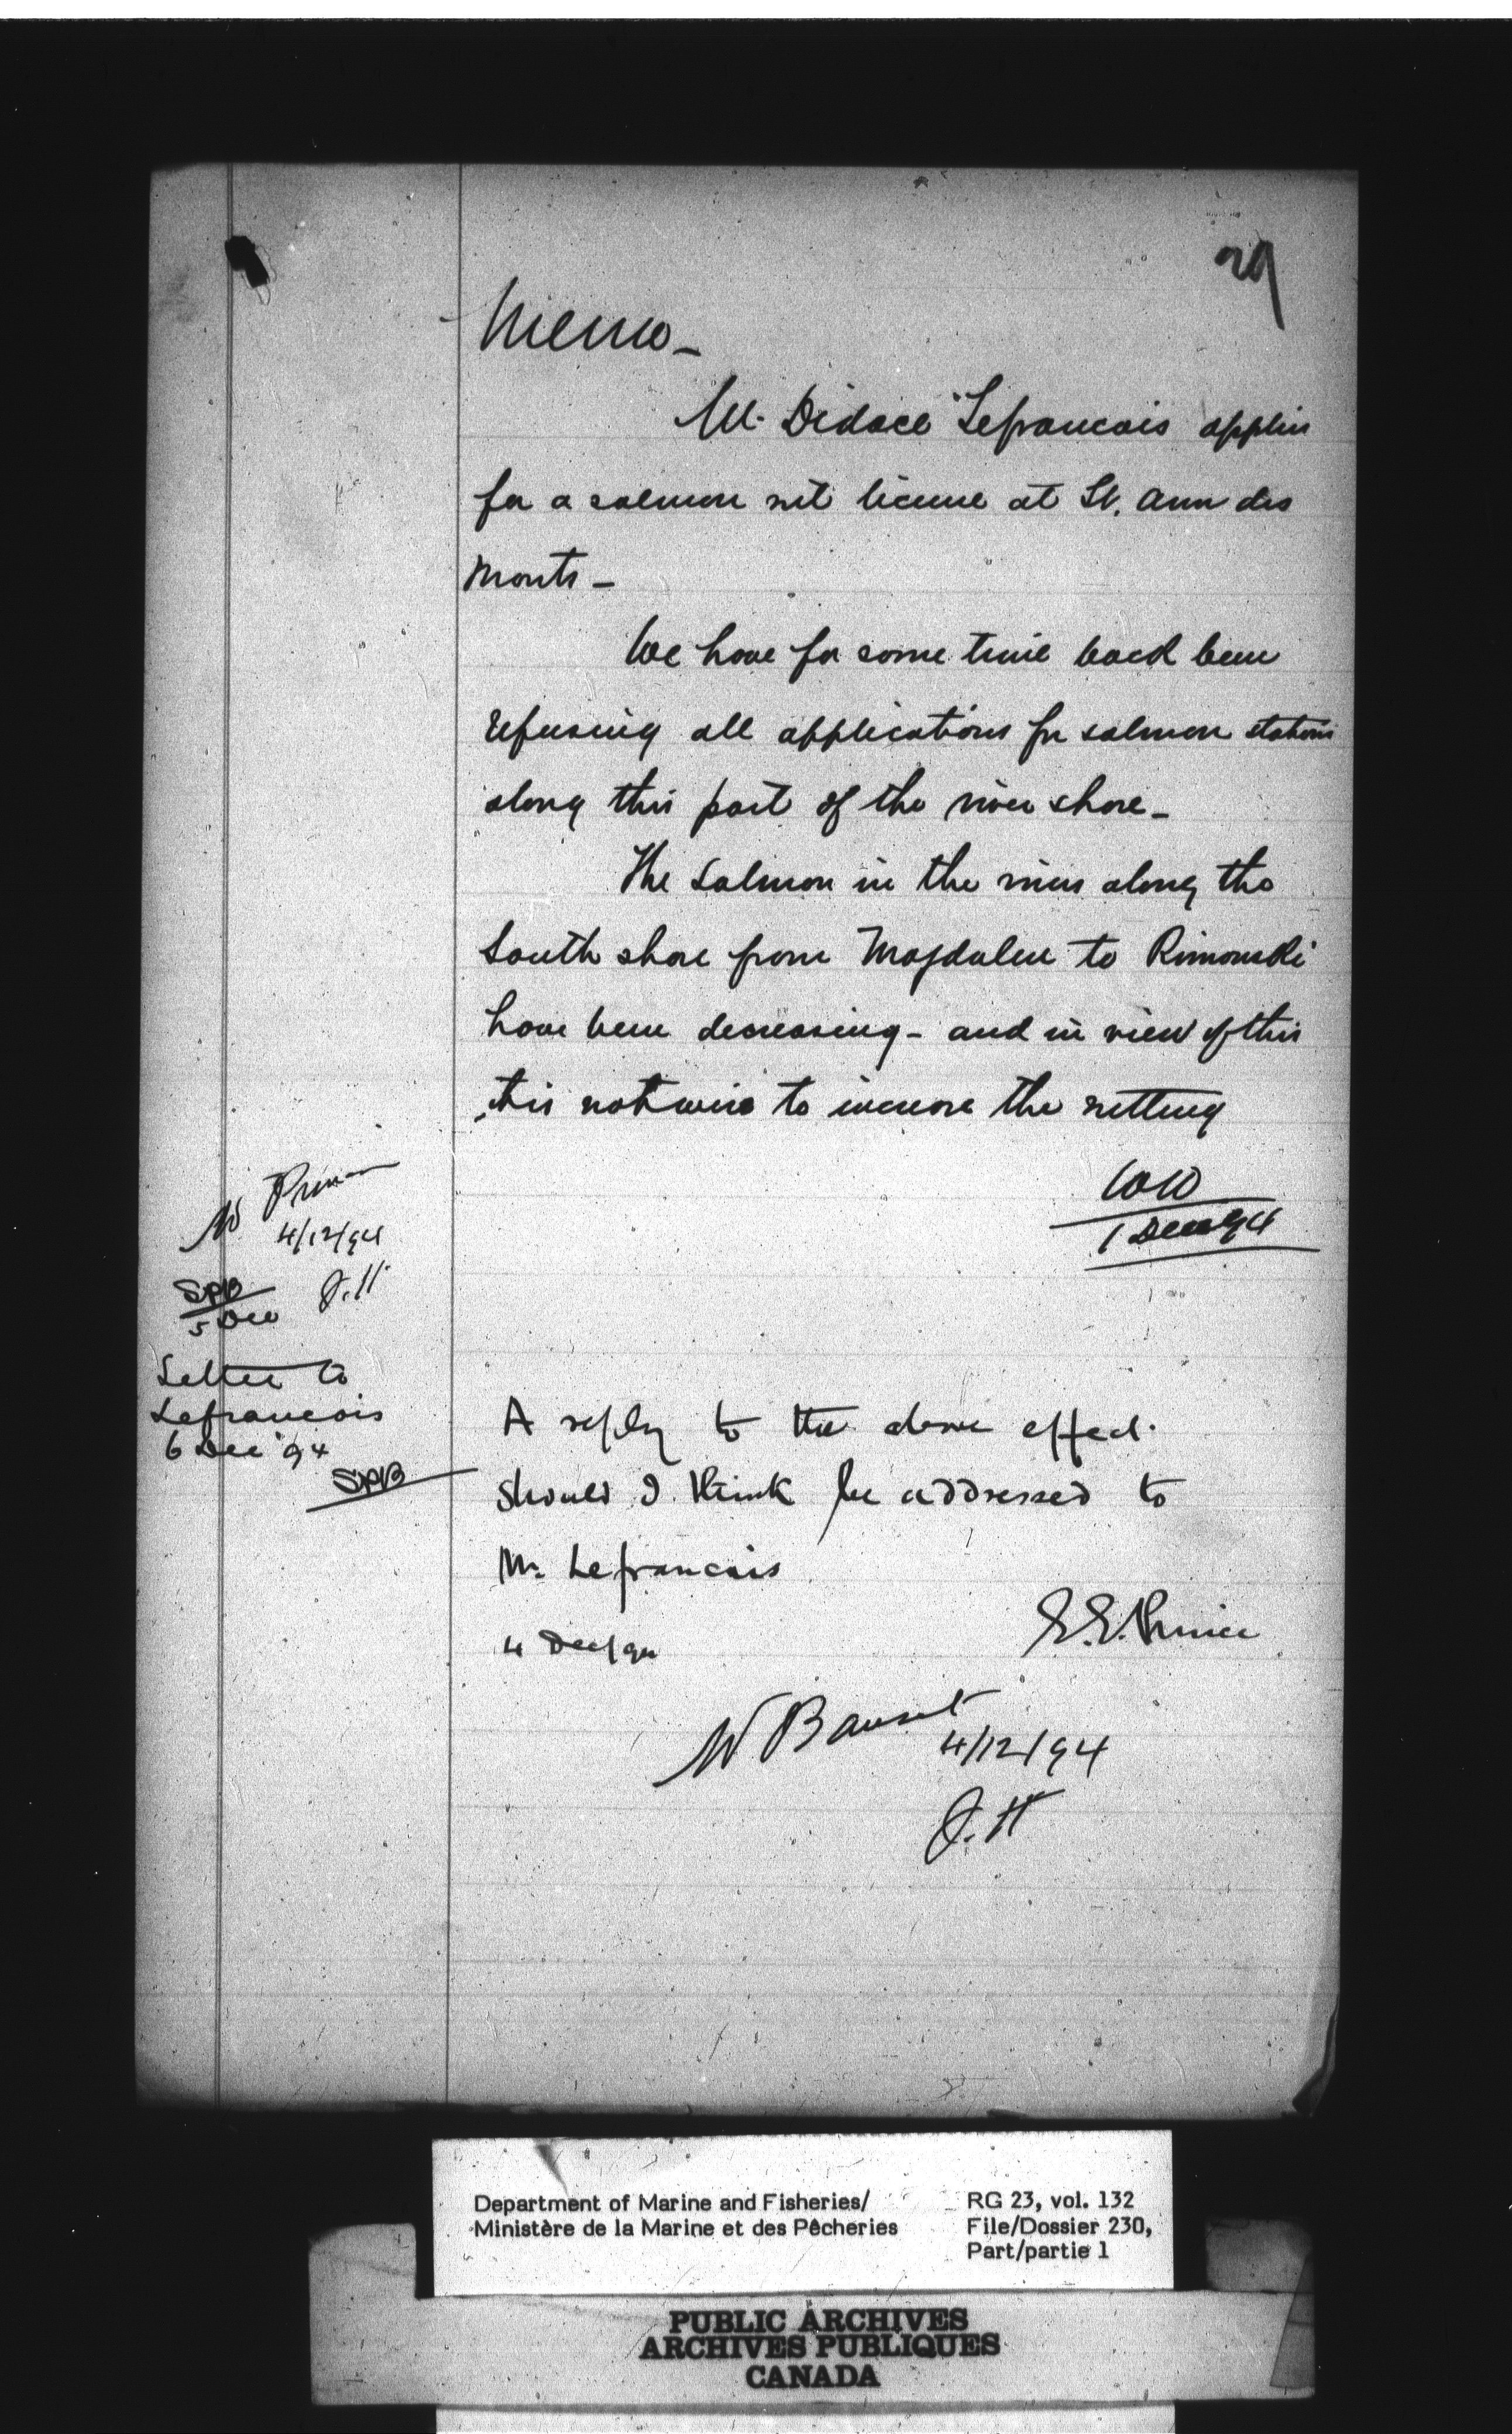 29
Memo_
Mr. Didace Lefrancois applies
for a salmon net license at St. Ann des
Monts _
We have for some time back been
refusing all applications for salmon stations
along this part of the river shore_
The salmon in the rivers along the
South shore from Magdalen to Rimouski
have been decreasing - and in view of this
it is not wise to increase the netting
1 Dec 94
Mr Prince
4/12/94
J.H
SPB
5 Dec
Letter to
Lefrancois
6 Dec '94
SPB
A reply to the above effect
should I think be addressed to
Mr. Lefrancois
4 Dec/94
E.E. Prince
Mr Bauset
4/12/94
J.H
Department of Marine and Fisheries/
Ministère de la Marine et des Pêcheries
RG 23, vol. 132
File/Dossier 230,
Part/partie 1
PUBLIC ARCHIVES
ARCHIVES PUBLIQUES
CANADA